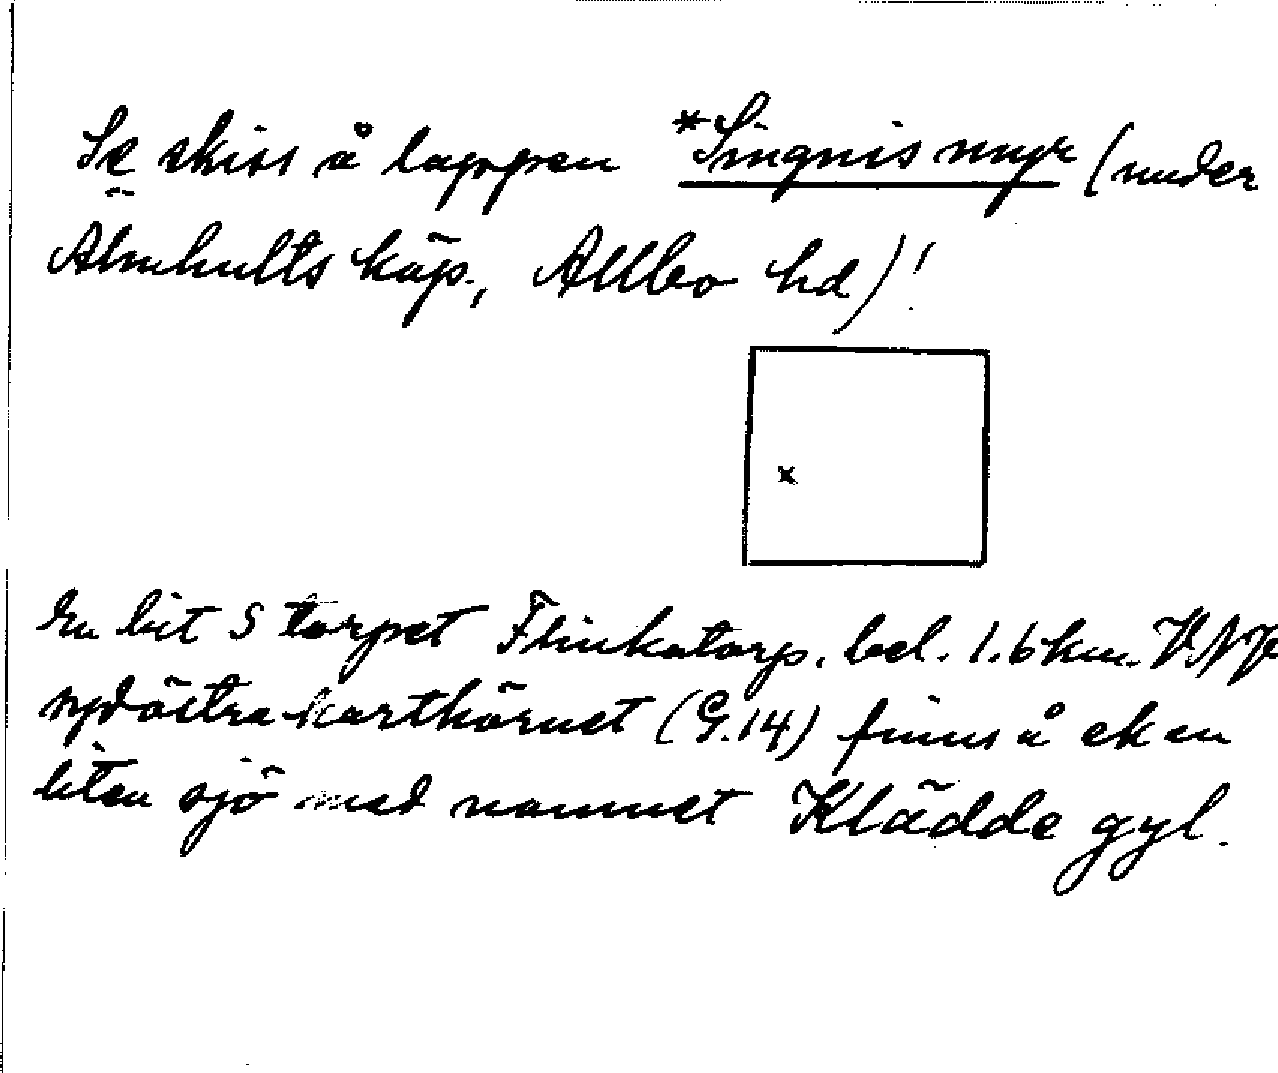 Se skiss å lappen *Singnis myr (under
Älmhults köp., Allbo hd)!
x
En bit S torpet Flinkatorp, bel. 1.6 km. VNV
sydöstra karthörnet (G.14) finns å ek en
liten sjö med namnet Klädde gyl.